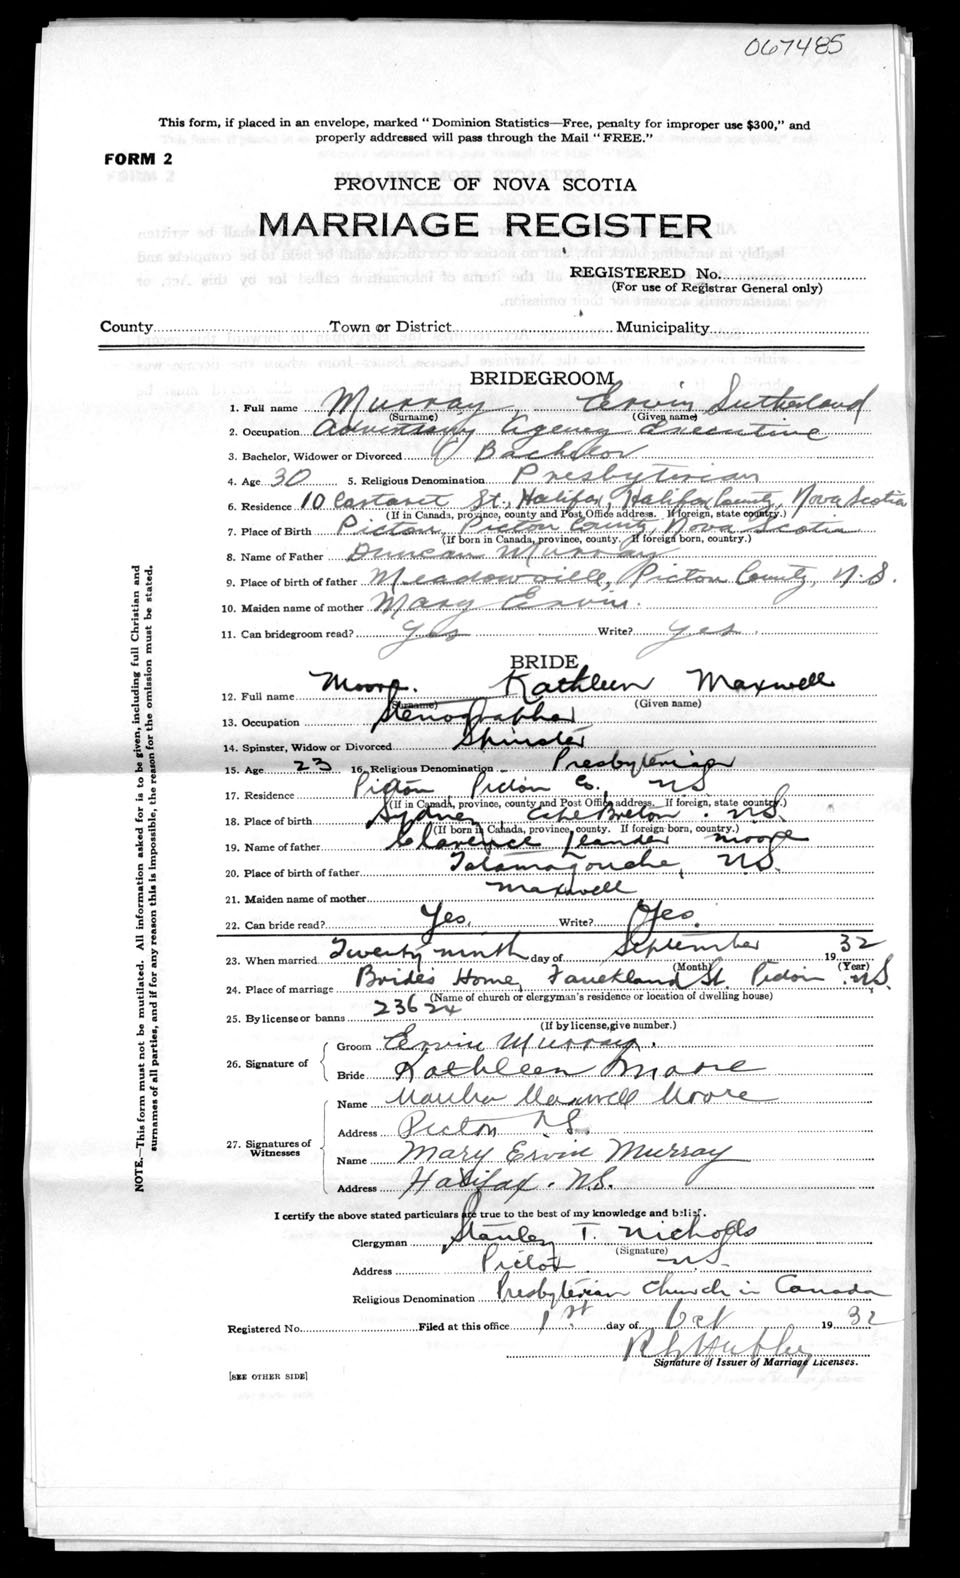 067485
This form, if placed in an envelope, marked "Dominion Statistics—Free, penalty for improper use $300," and
properly addressed will pass through the Mail "FREE."
FORM 2
PROVINCE OF NOVA SCOTIA
MARRIAGE REGISTER
REGISTERED No.
(For use of Registrar General only)
County Town or District Municipality
BRIDEGROOM
1. Full name Murray Ervin Sutherland
(Surname) (Given name)
2. Occupation Advertising Agency Executive
3. Bachelor, Widower or Divorced Bachelor
4. Age 30 5. Religious Denomination Presbyterian
6. Residence 10 St, Halifax, Halifax County, Nova Scotia
(If in Canada, province, county and Post Office address. If foreign, state country.)
7. Place of Birth Pictou, Pictou County, Nova Scotia
(If born in Canada, province, county. If foreign born, country.)
8. Name of Father Duncan Murray
9. Place of birth of father Meadowville, Pictou County, N.S.
10. Maiden name of mother Mary Ervin.
11. Can bridegroom read? Yes Write? yes.
BRIDE
12. Full name Moore. Kathleen Maxwell
(Surname) (Given name)
13. Occupation Stenographer
14. Spinster, Widow or Divorced Spinster
15. Age 23 16. Religious Denomination Presbyterian
17. Residence Pictou Pictou Co. NS
(If in Canada, province, county and Post Office address. If foreign, state country.)
18. Place of birth Sydney Cape Breton. N.S.
(If born in Canada, province, county. If foreign born, country.)
19. Name of father Clarence Leander Moore
20. Place of birth of father Tatamagouche, N.S.
21. Maiden name of mother Maxwell
22. Can bride read? Yes. Write? Yes.
23. When married Twenty ninth day of September 1932
(Month) (Year)
24. Place of marriage Brides Home, Faulkland St. Pictou N.S.
(Name of church or clergyman's residence or location of dwelling house)
25. By license or banns 23624
(If by license, give number.)
26. Signature of
Groom Ervin Murray.
Bride Kathleen Moore
27. Signatures of Witnesses
Name Maxwell Moore
Address Pictou N.S.
Name Mary Ervin Murray
Address Halifax. N.S.
I certify the above stated particulars are true to the best of my knowledge and belief.
Clergyman Stanley T. Nicholls
(Signature)
Address Pictou N.S.
Religious Denomination Presbyterian Church in Canada
Registered No. Filed at this office 1st day of Oct 1932
Signature of Issuer of Marriage Licenses.
[SEE OTHER SIDE]
NOTE.—This form must not be mutilated. All information asked for is to be given, including full Christian and
surnames of all parties, and if for any reason this is impossible, the reason for the omission must be stated.